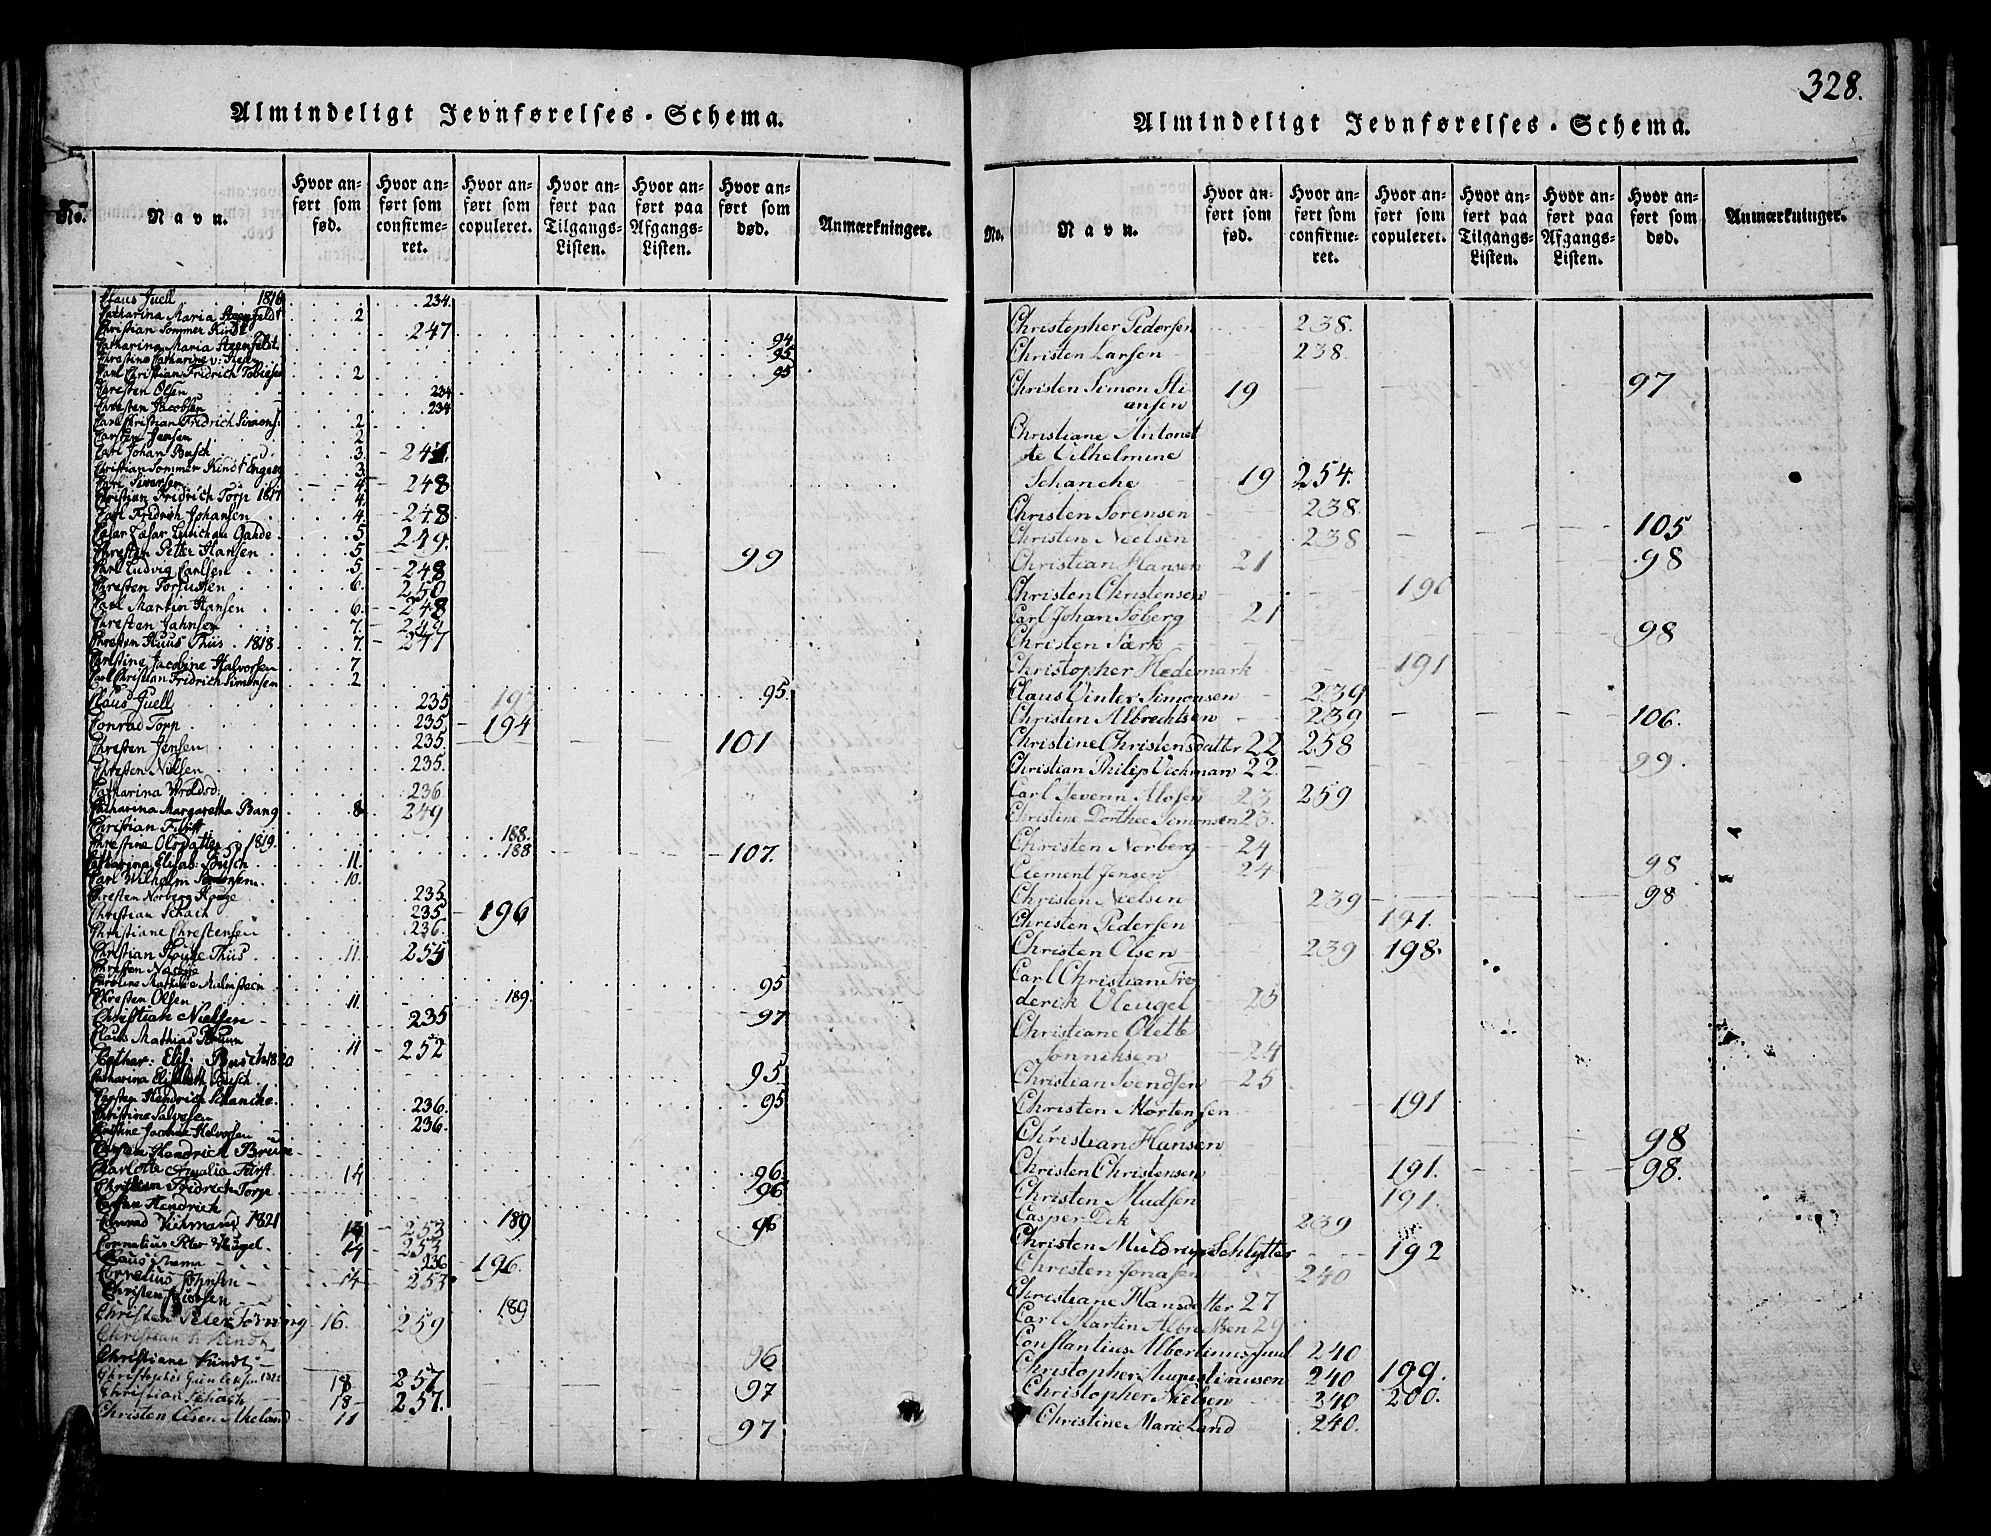 328.
Almindeligt Jevnførelses-Schema.
No.
Navn.
Hvor anført som fød.
Hvor anført som confirmeret.
Hvor anført som copuleret.
Hvor anført paa Tilgangs-Listen.
Hvor anført paa Afgangs-Listen.
Hvor anført som død.
Anmærkninger.
Claus Juell 1816 234.
Catharina Maria 2
Christian Sommer Kindt 247
Catharina Maria 94
95
Carl Christian Fridrich Tobiesen 2 95
Christen Olsen 234
Christen Jacobsen 234
Carl Christian Fridrich Simons. 2
Carsten Jensen 2
Carl Johan Busch 3.
Christian Sommer Kindt 3
Carl Siversen 4 248
Christian Fridrich Torp 1817 4
Carl Fridrich Johansen 4 248
5 249.
Christen Petter Hansen 5 99
Carl Ludvig Carlsen 5 248
Christen 6. 250
Carl Martin Hansen 6 248
Christen Jahnsen 7 249
Christen Huus Thiis 1818 7. 247
Christine Jacobine Halvorsen 7
Carl Christian Fridrich Simonsen 2 95.
Claus Juell 235
Conrad Torp 235 194
Christen Jensen 235 101
Christen Nielsen 235.
Catharina 236
Catharina Margaretha Bang 8 249
Christian 188.
Christine Olsdatter 1819. 188 107.
Catharina Elisab. Busch 11.
Carl Wilhelm 10.
Christen Norberg 235
Christian Schach 235 196
Christiane Christensen 236.
Christian Thiis 11. 254
Christen
Caroline Mathilde 95
Christen Olsen 11. 189.
Christian Nielsen 235 97
Claus Mathias Bruun 11 252
Cathar. Elis. Busch 1820
Catharina Elisabeth Busch 95
Carsten Hendrich Schanche 236. 95
Christine Salvesen 236.
Christine Jacobine Halvorsen
Hendrich Bruun
Charlotte Amalia Fürst 14 96
Christian Fridrich Torp 96
Hendrich
Conrad Vichmand 1821 14 253 189 96
Cornelius Peter 14 253
Claus Trema 236 196.
Cornelius Johnsen 14 253
Christen 189
Christen Peter Torning 16. 259
Christian Kindt
Christiane Kundt 96
Christopher 18 257
Christian Schach 18 257. 97
Christen Olsen 11 97
Almindeligt Jevnførelses-Schema.
No.
Navn.
Hvor anført som fød.
Hvor anført som confirmeret.
Hvor anført som copuleret.
Hvor anført paa Tilgangs-Listen.
Hvor anført paa Afgangs-Listen.
Hvor anført som død.
Anmærkninger.
Christopher Pedersen 238.
Christen Larsen 238.
Christen Simon Sti- 19 97
ansen
Christiane Antonet
te Vilhelmine
Schanche 19 254.
Christen Sörensen 238.
Christen Nielsen 238 105
Christian Hansen 21 98
Christen Christensen 190
Carl Johan Söberg 21
Christen Särk 98
Christopher Hedemark 191
Claus Vinter Simonsen 239
Christen Albrechtsen 239 106.
Christine Christensdatter 22 258
Christian Philip Vichman 22. 99.
Carl Severin Alosen 23 259
Christine Dorthee Simonsen 23.
Christen Norberg 24
Clement Jensen 24 98
Christen Nielsen 239 98
Christen Pedersen 191.
Christen Olsen 239 198.
Carl Christian Fre
derik Vleugel 25
Christiane Olette
Jonniksen 24
Christian Svendsen 25
Christen Mortensen 191
Christian Hansen 98
Christen Christensen 191. 98.
Christen Madsen 191.
Casper Dek 239
Christen Muldrup Schlytter 192
Christen Jonasen 240
Christiane Hansdatter 27
Carl Martin Albrechtsen 29
Constantius Albertinus Juul 240
Christopher Augustinusen 240 199.
Christopher Nielsen 240 200.
Christine Marie Land 240.